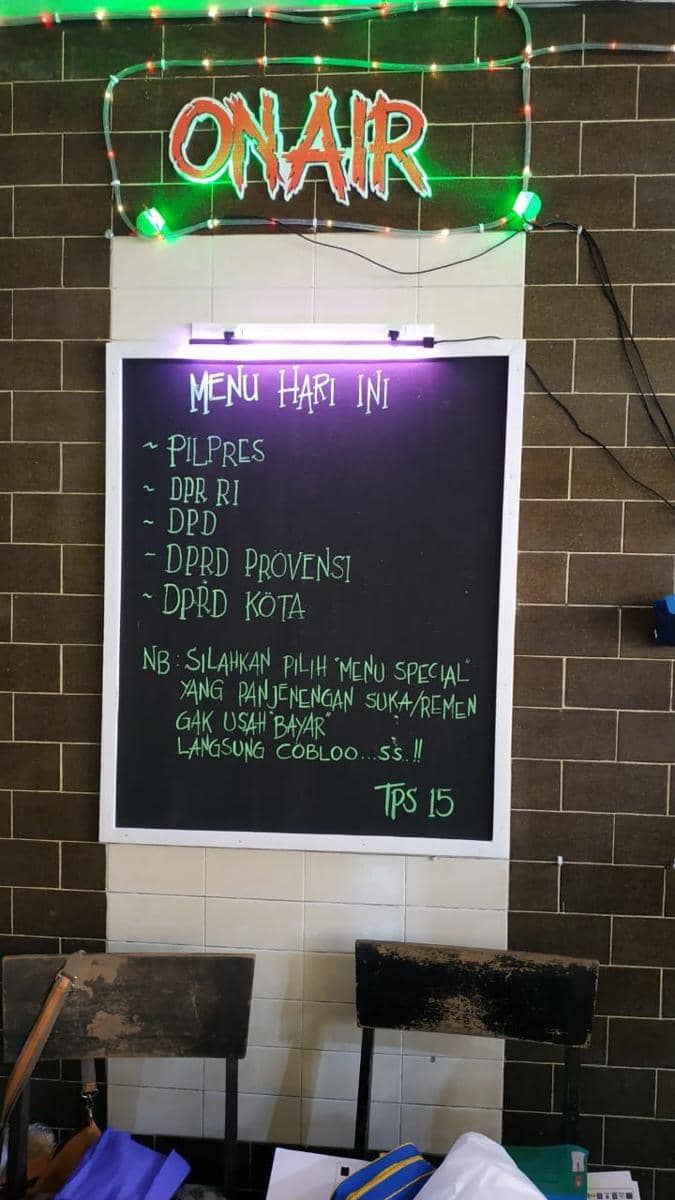 ON AIR
MENU HARI INI
~ PILPRES
~ DPR RI
~ DPD
~ DPRD PROVENSI
~ DPRD KOTA
NB : SILAHKAN PILIH "MENU SPECIAL"
YANG PANJENENGAN SUKA/REMEN
GAK USAH "BAYAR"
LANGSUNG COBLOO...SS..!!
TPS 15